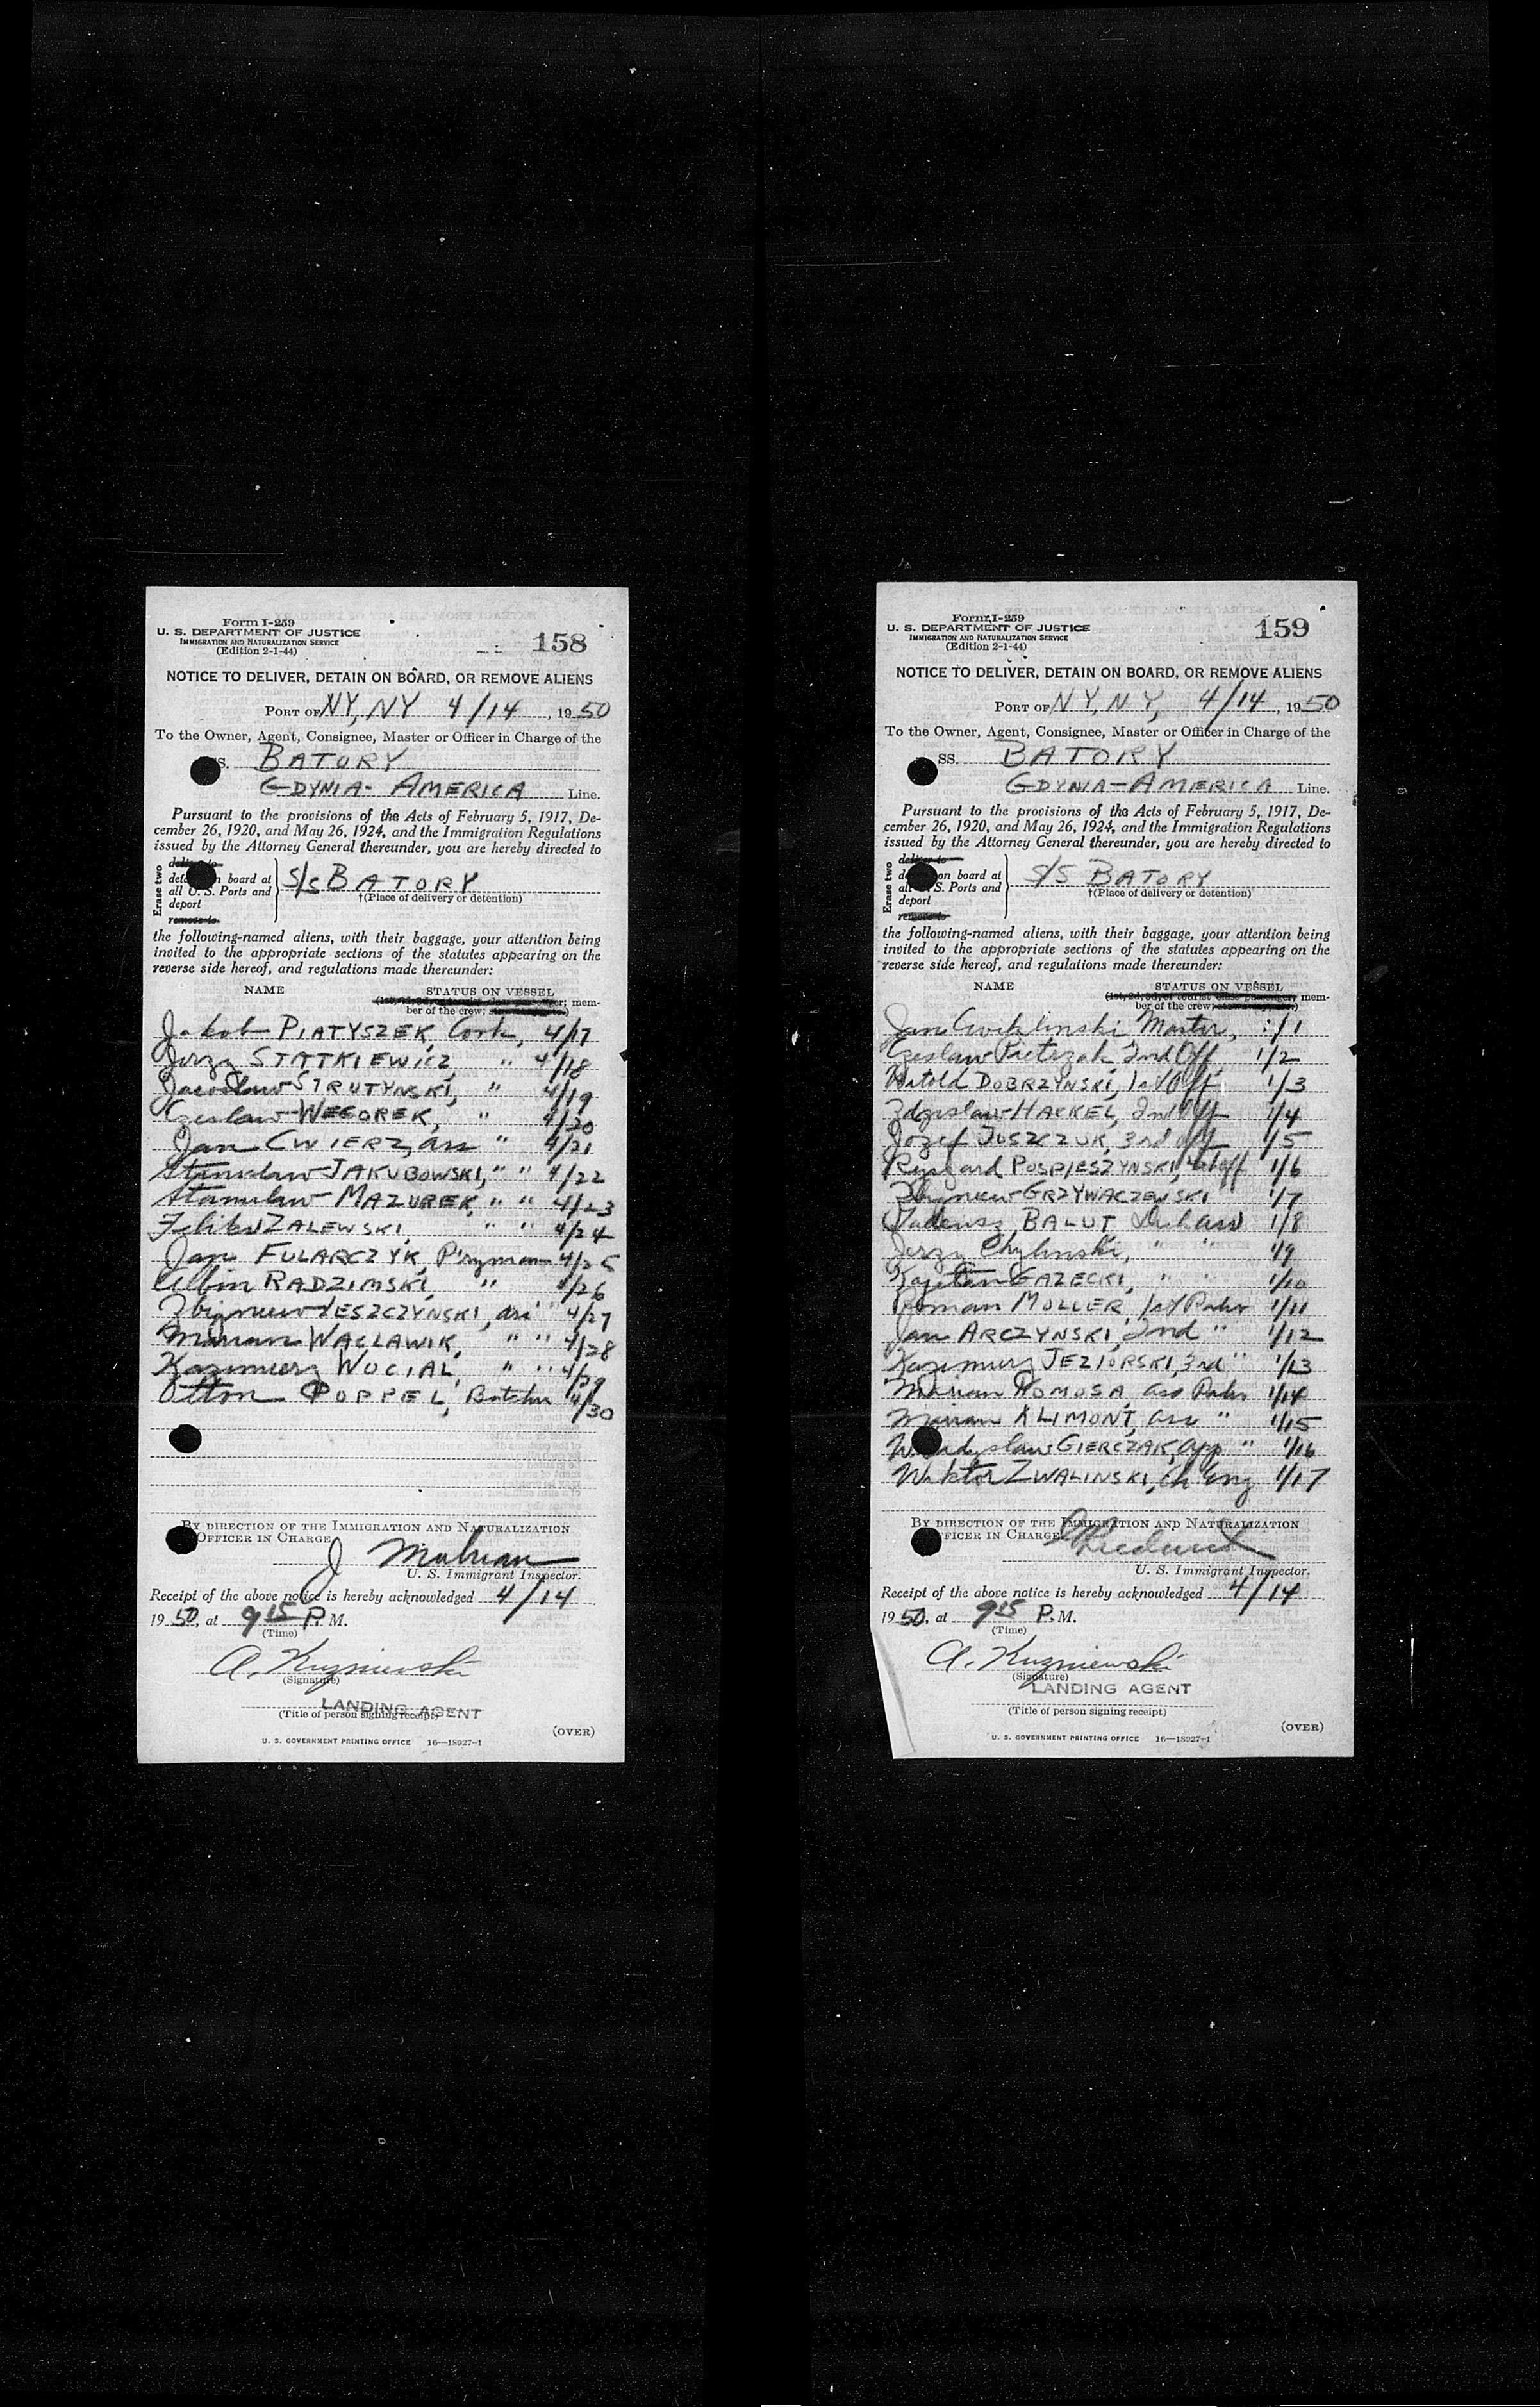 Form I-259
U. S. DEPARTMENT OF JUSTICE
IMMIGRATION AND NATURALIZATION SERVICE
(Edition 2-1-44)
158
NOTICE TO DELIVER, DETAIN ON BOARD, OR REMOVE ALIENS
PORT OF NY, NY 4/14, 1950
To the Owner, Agent, Consignee, Master or Officer in Charge of the
SS. BATORY
GDYNIA- AMERICA Line.
Pursuant to the provisions of the Acts of February 5, 1917, De-
cember 26, 1920, and May 26, 1924, and the Immigration Regulations
issued by the Attorney General thereunder, you are hereby directed to
Erase two
deliver to
on board at
all U. S. Ports and
deport
remove to
S/S BATORY
†(Place of delivery or detention)
the following-named aliens, with their baggage, your attention being
invited to the appropriate sections of the statutes appearing on the
reverse side hereof, and regulations made thereunder:
NAME STATUS ON VESSEL
mem-
ber of the crew;
Jakob PIATYSZEK, Cook, 4/17
Jerzy STATKIEWICZ, " 4/18
Jaroslaw STRUTYNSKI, " 4/19
Czeslaw WEGOREK, " 4/20
Jan CWIERZ, ass " 4/21
Stanislaw JAKUBOWSKI, " " 4/22
Stanislaw MAZUREK, " " 4/23
Feliks ZALEWSKI, " " 4/24
Jan FULARCZYK, 4/25
Albin RADZIMSKI, " 4/26
Zbigniew LESZCZYNSKI, ass " 4/27
Marian WACLAWIK, " " 4/28
Kazimierz WOCIAL, " " 4/29
Otton POPPEL, Butcher 4/30
BY DIRECTION OF THE IMMIGRATION AND NATURALIZATION
OFFICER IN CHARGE
J
U. S. Immigrant Inspector.
Receipt of the above notice is hereby acknowledged 4/14
1950, at 915 P. M.
(Time)
A. Kuzniewski
(Signature)
LANDING AGENT
(Title of person signing receipt)
(OVER)
U. S. GOVERNMENT PRINTING OFFICE 16—18927-1
Form I-259
U. S. DEPARTMENT OF JUSTICE
IMMIGRATION AND NATURALIZATION SERVICE
(Edition 2-1-44)
159
NOTICE TO DELIVER, DETAIN ON BOARD, OR REMOVE ALIENS
PORT OF NY, N.Y, 4/14, 1950
To the Owner, Agent, Consignee, Master or Officer in Charge of the
SS. BATORY
GDYNIA-AMERICA Line.
Pursuant to the provisions of the Acts of February 5, 1917, De-
cember 26, 1920, and May 26, 1924, and the Immigration Regulations
issued by the Attorney General thereunder, you are hereby directed to
Erase two
deliver to
on board at
all U. S. Ports and
deport
remove to
S/S BATORY
†(Place of delivery or detention)
the following-named aliens, with their baggage, your attention being
invited to the appropriate sections of the statutes appearing on the
reverse side hereof, and regulations made thereunder:
NAME STATUS ON VESSEL
mem-
ber of the crew;
Jan Cwiklinski Master, 1/1
Czeslaw Pietrzak 2nd Off 1/2
Witold DOBRZYNSKI, 1st Off 1/3
Zdzislaw HACKEL, 2nd Off 1/4
Jozef JUSZCZUK, 3rd off 1/5
Ryszard POSPIESZYNSKI, off 1/6
Zbigniew GRZYWACZEWSKI " 1/7
Tadeusz BALUT 1/8
Jerzy Chylinski, " " 1/9
Kajetan GAZECKI, " " 1/10
Roman MOLLER, 1st Purser 1/11
Jan ARCZYNSKI, 2nd " 1/12
Kazimierz JEZIORSKI, 3rd " 1/13
Marian HOMOSA, ass Purser 1/14
Marian KLIMONT, ass " 1/15
Wladyslaw GIERCZAK, app " 1/16
Wiktor ZWALINSKI, Ch Eng 1/17
BY DIRECTION OF THE IMMIGRATION AND NATURALIZATION
OFFICER IN CHARGE
U. S. Immigrant Inspector.
Receipt of the above notice is hereby acknowledged 4/14
1950, at 915 P. M.
(Time)
A. Kuzniewski
(Signature)
LANDING AGENT
(Title of person signing receipt)
(OVER)
U. S. GOVERNMENT PRINTING OFFICE 16—18927-1